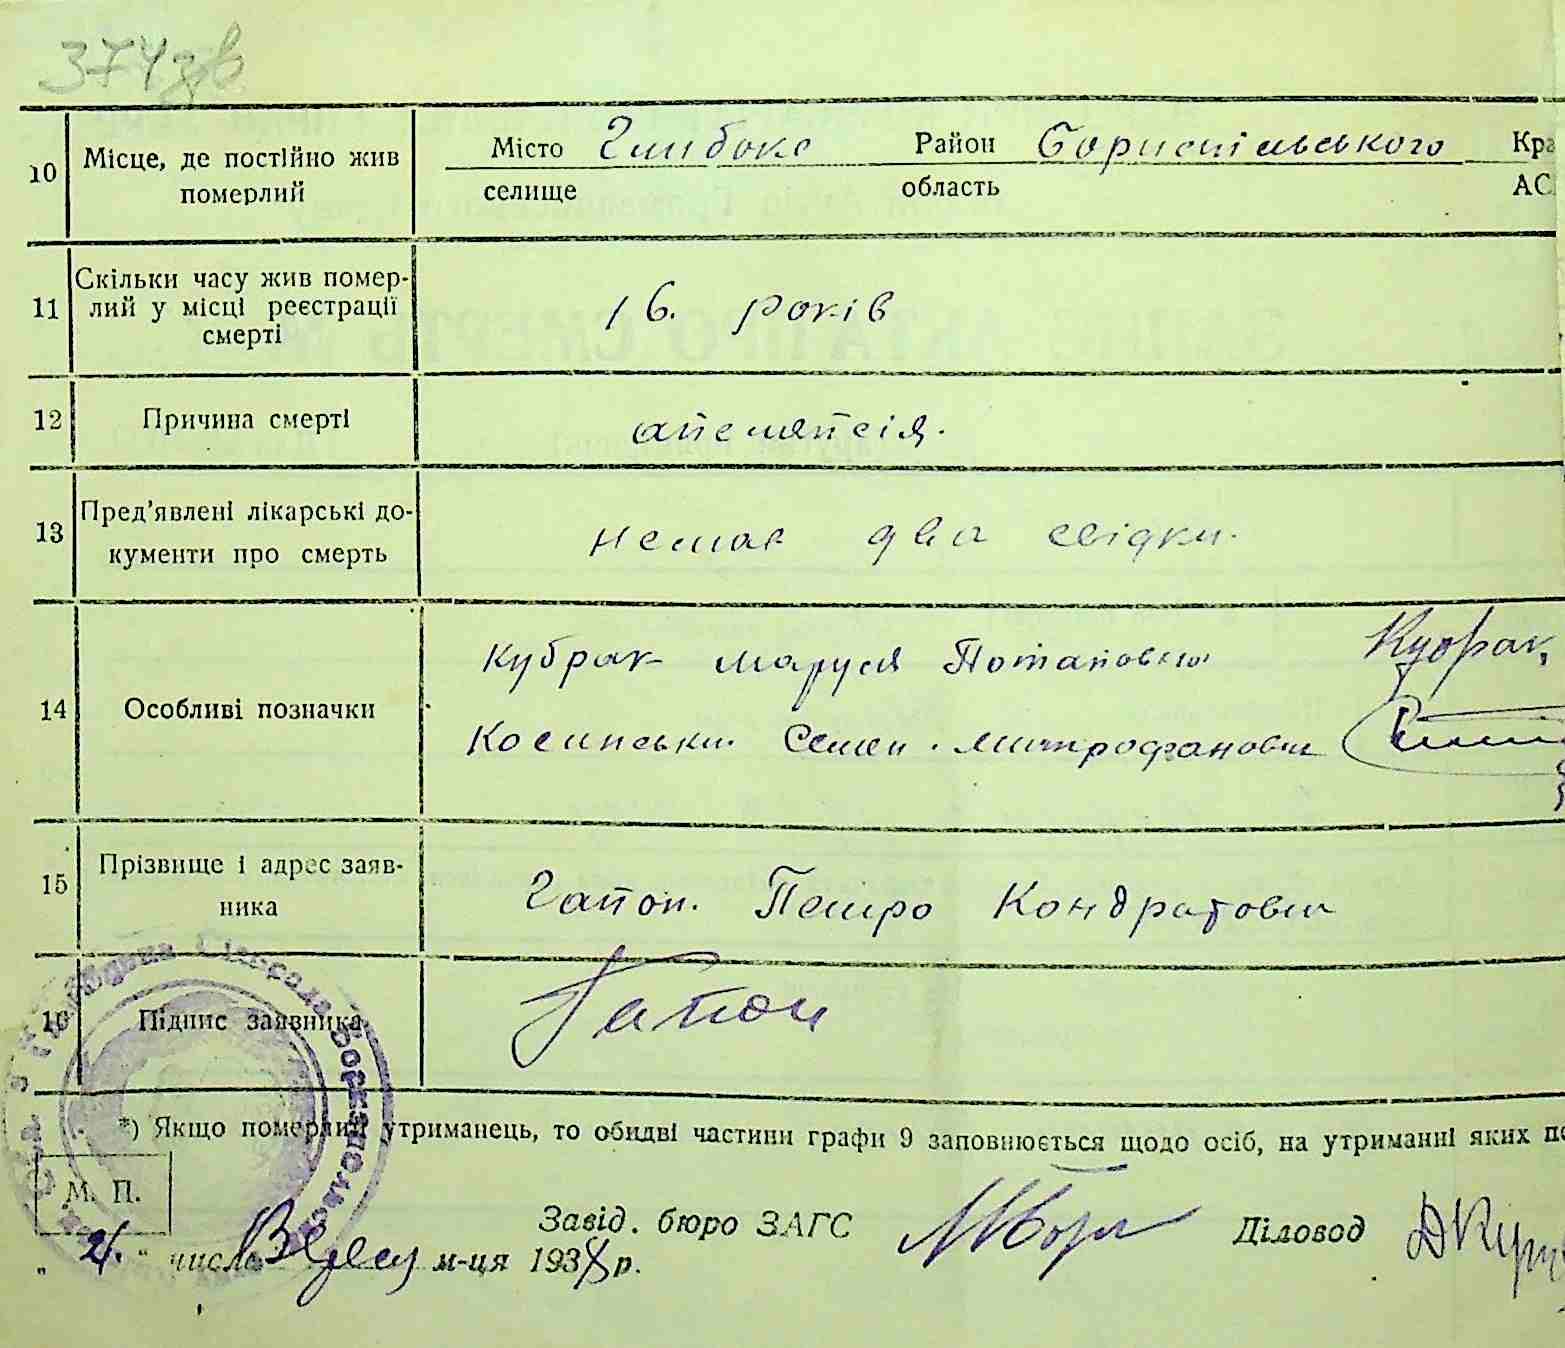 374зв
10 Місце, де постійно жив померлий Місто Глибоке Район Бориспільського
селище область
11 Скільки часу жив помер-
лий у місці реєстрації
смерті 16. років
12 Причина смерті апеляпсія.
13 Пред'явлені лікарські до-
кументи про смерть немає два свідки.
14 Особливі позначки
Кубрак Маруся Потаповна Кубрак
Косинський Семен Митрофанович
15 Прізвище і адрес заяв-
ника Гапон. Петро Кондратович
16 Підпис заявника Гапон
*) Якщо померлий утриманець, то обидві частини графи 9 заповнюється щодо осіб, на утриманні яких
М. П.
Завід. бюро ЗАГС Діловод
„ 21. " число м-ця 1938 р.